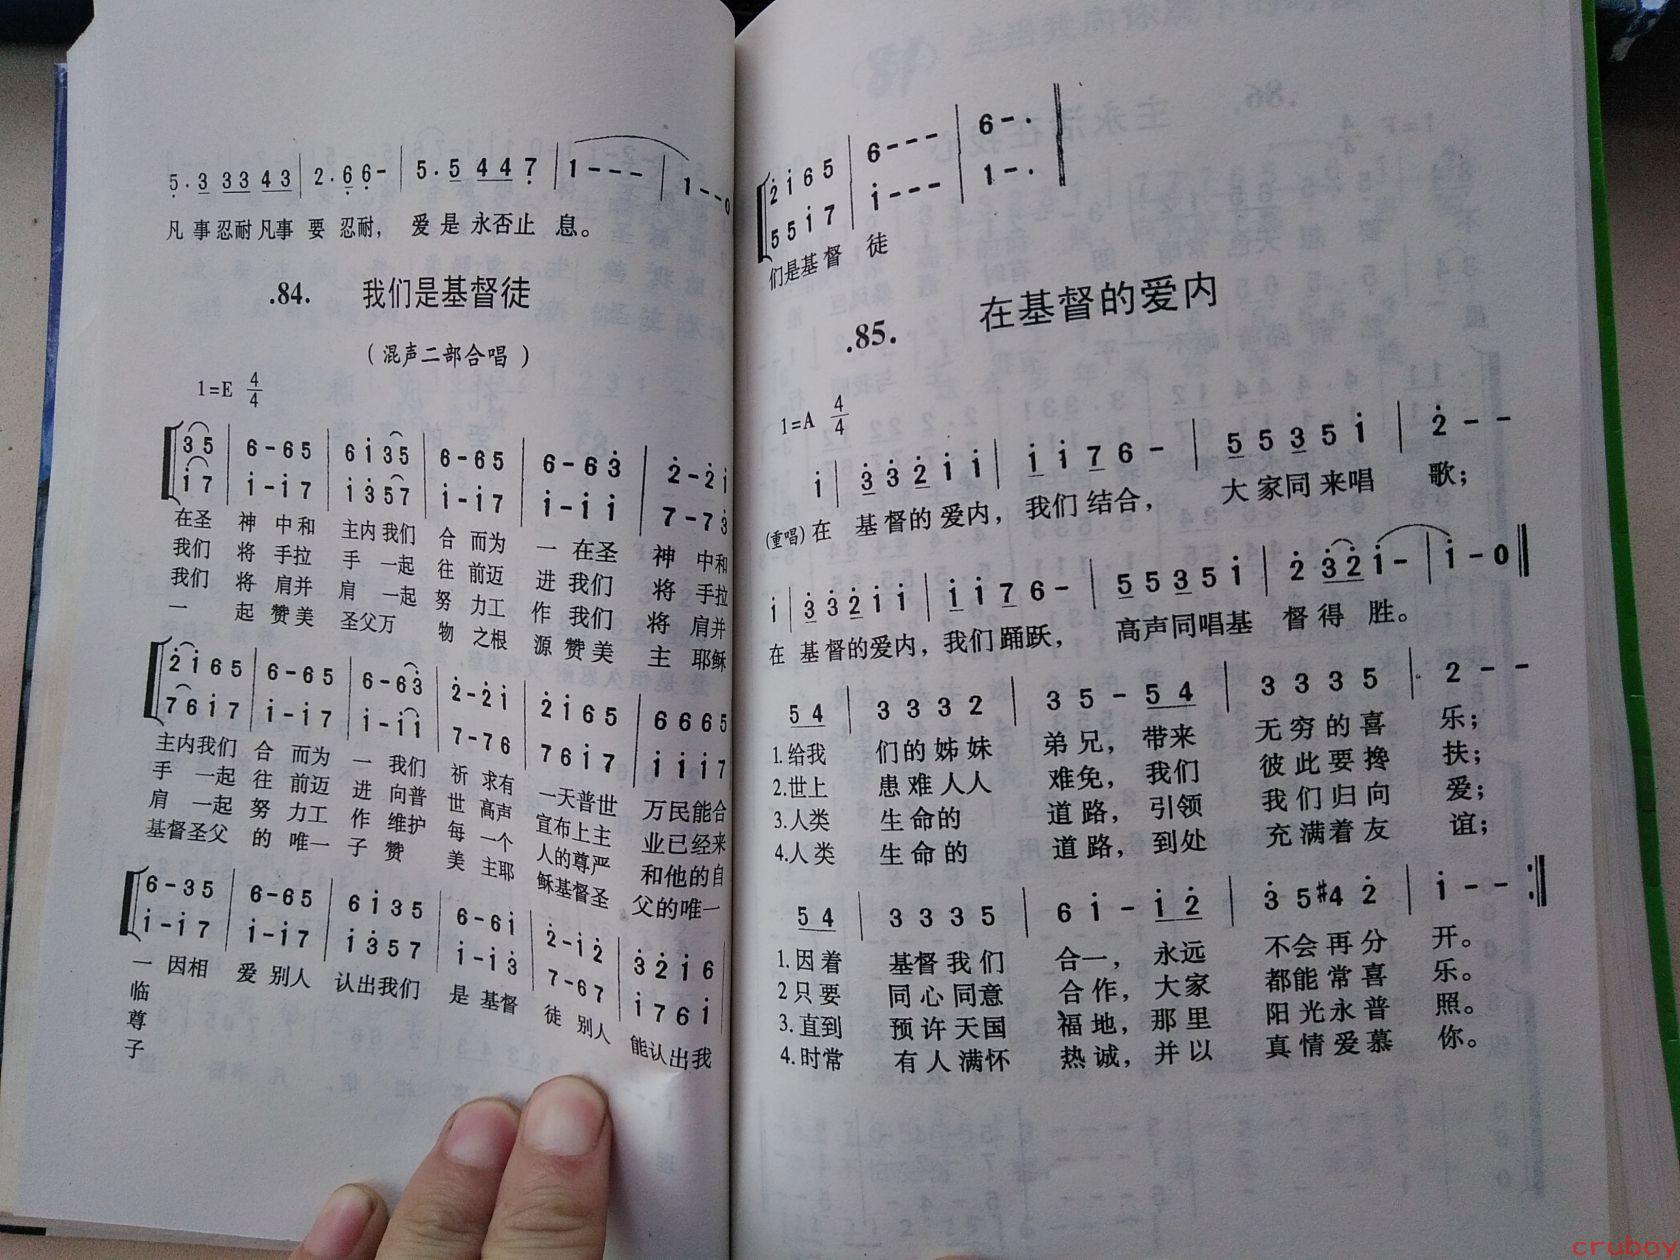 5·3 33 43 | 2·66- | 5·5 447 | 1--- | 1--0
凡事忍耐凡事 要 忍耐， 爱是永否止 息。
.84. 我们是基督徒
（混声二部合唱）
1=E 4/4
35 | 6-65 | 6i35 | 6-65 | 6-63 | 2-2i
i7 | i-i7 | i357 | i-i7 | i-ii | 7-73
在圣 神 中和 主内我们 合 而为 一 在圣 神 中和
我们 将 手拉 手 一起 往 前迈 进 我们 将 手拉
我们 将 肩并 肩 一起 努 力工 作 我们 将 肩并
一 起赞美 圣父万 物 之根 源赞美 主 耶稣
2i65 | 6-65 | 6-63 | 2-2i | 2i65 | 6665
76i7 | i-i7 | i-ii | 7-76 | 76i7 | iii7
主内我们 合 而为 一 我们 祈 求有 一天普世 万民能合
手 一起 往 前迈 进 向普 世 高声 宣布上主 业已经来
肩 一起 努 力工 作 维护 每 一个 人的尊严 和他的自
基督圣父 的 唯一 子 赞 美 主耶 稣基督圣 父的唯一
6-35 | 6-65 | 6i35 | 6-6i | 2-i2 | 32i6
i-i7 | i-i7 | i357 | i-i3 | 7-67 | i76i
一 因相 爱 别人 认出我们 是 基督 徒 别人 能认出我
临
尊
子
2i65 | 6--- | 6-·
55i7 | i--- | 1-·
们是基督 徒
.85. 在基督的爱内
1=A 4/4
i | 332ii | ii76- | 5535i | 2--
(重唱)在 基督的爱内，我们结合， 大家同来唱 歌；
i | 332ii | ii76- | 5535i | 232i- | i-0
在 基督的爱内，我们踊跃， 高声同唱基 督得 胜。
54 | 3332 | 35-54 | 3335 | 2--
1.给我 们的姊妹 弟兄，带来 无穷的喜 乐；
2.世上 患难人人 难免，我们 彼此要搀 扶；
3.人类 生命的 道路，引领 我们归向 爱；
4.人类 生命的 道路，到处 充满着友 谊；
54 | 3335 | 6i-i2 | 35#42 | i-- :
1.因着 基督我们 合一，永远 不会再分 开。
2只要 同心同意 合作，大家 都能常喜 乐。
3.直到 预许天国 福地，那里 阳光永普 照。
4.时常 有人满怀 热诚，并以 真情爱慕 你。
cruboy